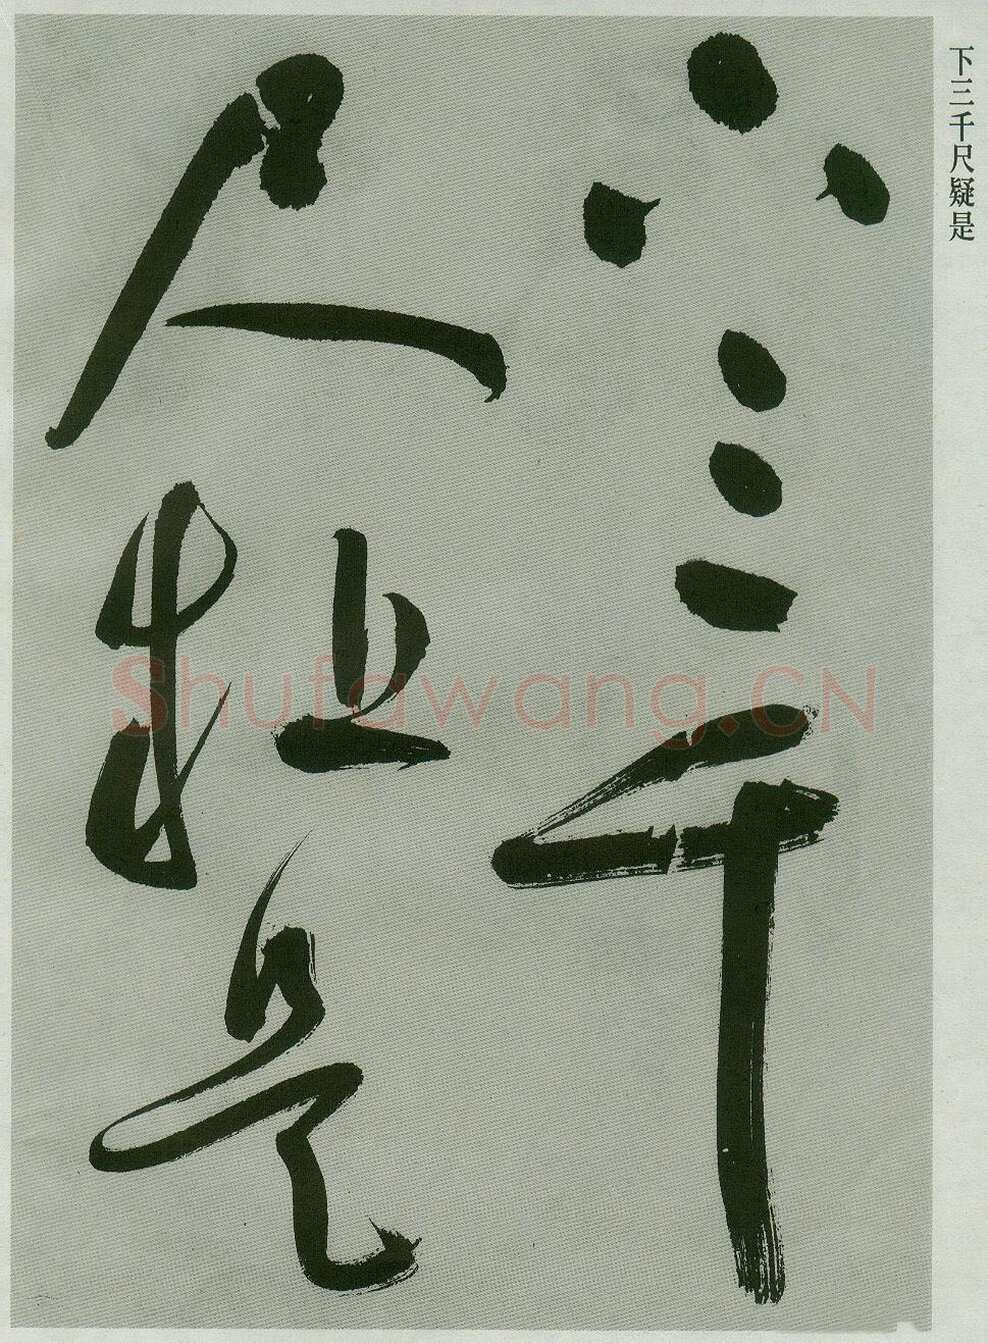 下三千尺疑是
下三千
尺疑是
Shufawang.CN